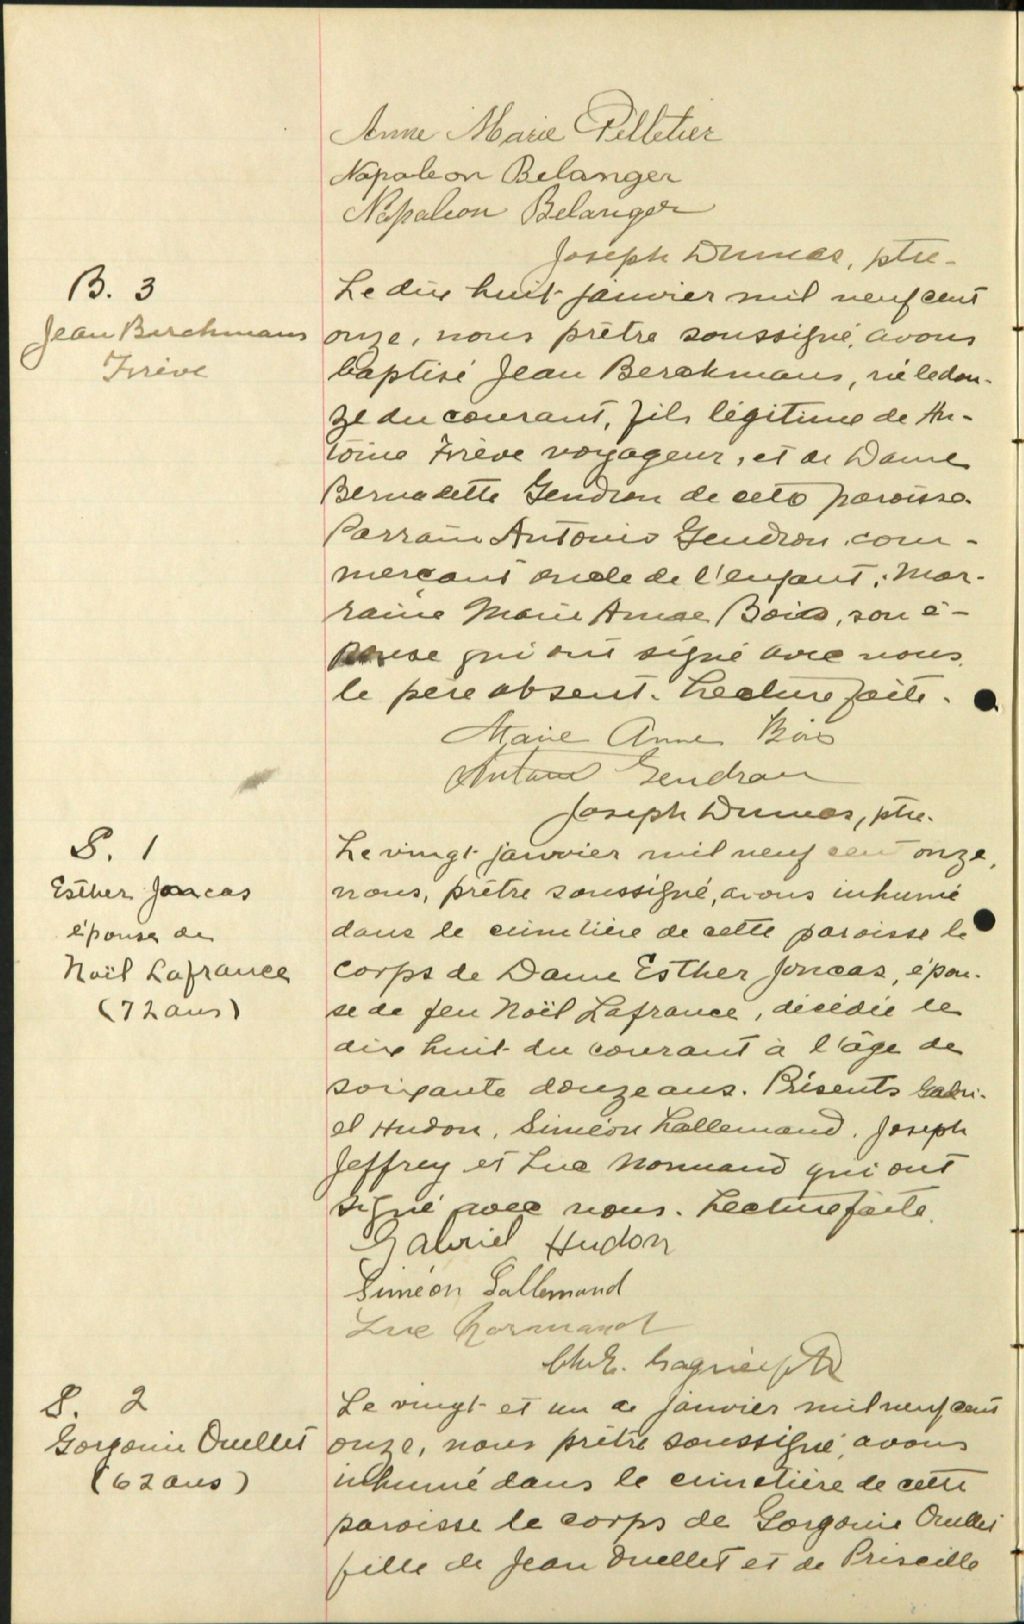 Anne Marie Pelletier
Napoleon Belanger
Napoleon Belanger
Joseph Dumas, ptre.
B. 3
Jean Berchmans
Frève
Le dix huit janvier mil neuf cent
onze, nous prêtre soussigné, avons
baptisé Jean Berchmans, né le dou-
ze du courant, fils légitime de An-
toine Frève voyageur, et de Dame
Bernadette Gendron de cette paroisse.
Parrain Antonio Gendron, com-
merçant oncle de l'enfant; Mar-
raine Marie Anne Bois, son é-
pouse qui ont signé avec nous,
le père absent. Lecture faite.
Marie Anne Bois
Gendron
Joseph Dumas, ptre.
S. 1
Esther Joncas
épouse de
Noël Lafrance
(72 ans)
Le vingt janvier mil neuf cent onze,
nous, prêtre soussigné, avons inhumé
dans le cimetière de cette paroisse le
corps de Dame Esther Joncas, épou-
se de feu Noël Lafrance, décédée le
dix huit du courant à l'âge de
soixante douze ans. Présents Gabri-
el Hudon, Siméon Lallemand, Joseph
Jeffrey et Luc Normand qui ont
signé avec nous. Lecture faite.
Gabriel Hudon
Siméon Lallemand
Luc Normand
S. 2
Gorgonie Ouellet
(62 ans)
Le vingt et un de janvier mil neuf cent
onze, nous prêtre soussigné, avons
inhumé dans le cimetière de cette
paroisse le corps de Gorgonie Ouellet
fille de Jean Ouellet et de Priscille